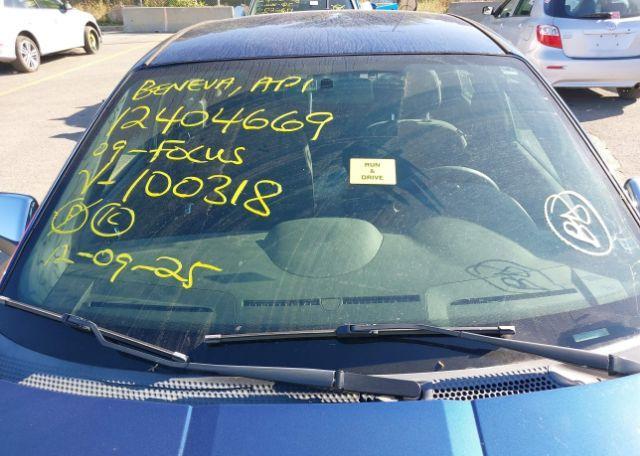 BENEVA, API
12404669
09-FOCUS
V-100318
P K
12-09-25
RUN
&
DRIVE